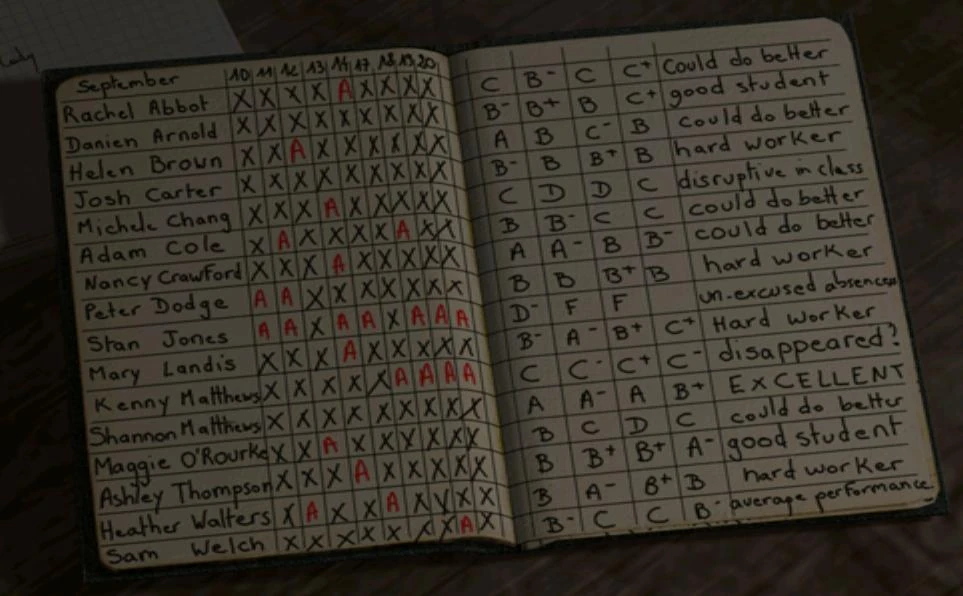 September 10 11 12 13 14 17 18 19 20
Rachel Abbot X X X X A X X X X C B- C C+ Could do better
Danien Arnold X X X X X X X X X B- B+ B C+ good student
Helen Brown X X A X X X X X X A B C- B could do better
Josh Carter X X X X X X X X X B- B B+ B hard worker
Michele Chang X X X A X X X X X C D D C disruptive in class
Adam Cole X A X X X X A X X B B- C C could do better
Nancy Crawford X X X A X X X X X A A- B B- could do better
Peter Dodge A A X X X X X X X B B B+ B hard worker
Stan Jones A A X A A X A A A D- F F un-excused absences
Mary Landis X X X A X X X X X B- A- B+ C+ Hard worker
Kenny Matthews X X X X X A A A A C C- C+ C- disappeared?
Shannon Matthews X X X X X X X X X A A- A B+ EXCELLENT
Maggie O'Rourke X X A X X X X X X B C D C could do better
Ashley Thompson X X X A X X X X X B B+ B+ A- good student
Heather Walters X A X X A X X X X B A- B+ B hard worker
Sam Welch X X X X X X X A X B- C C B- average performance